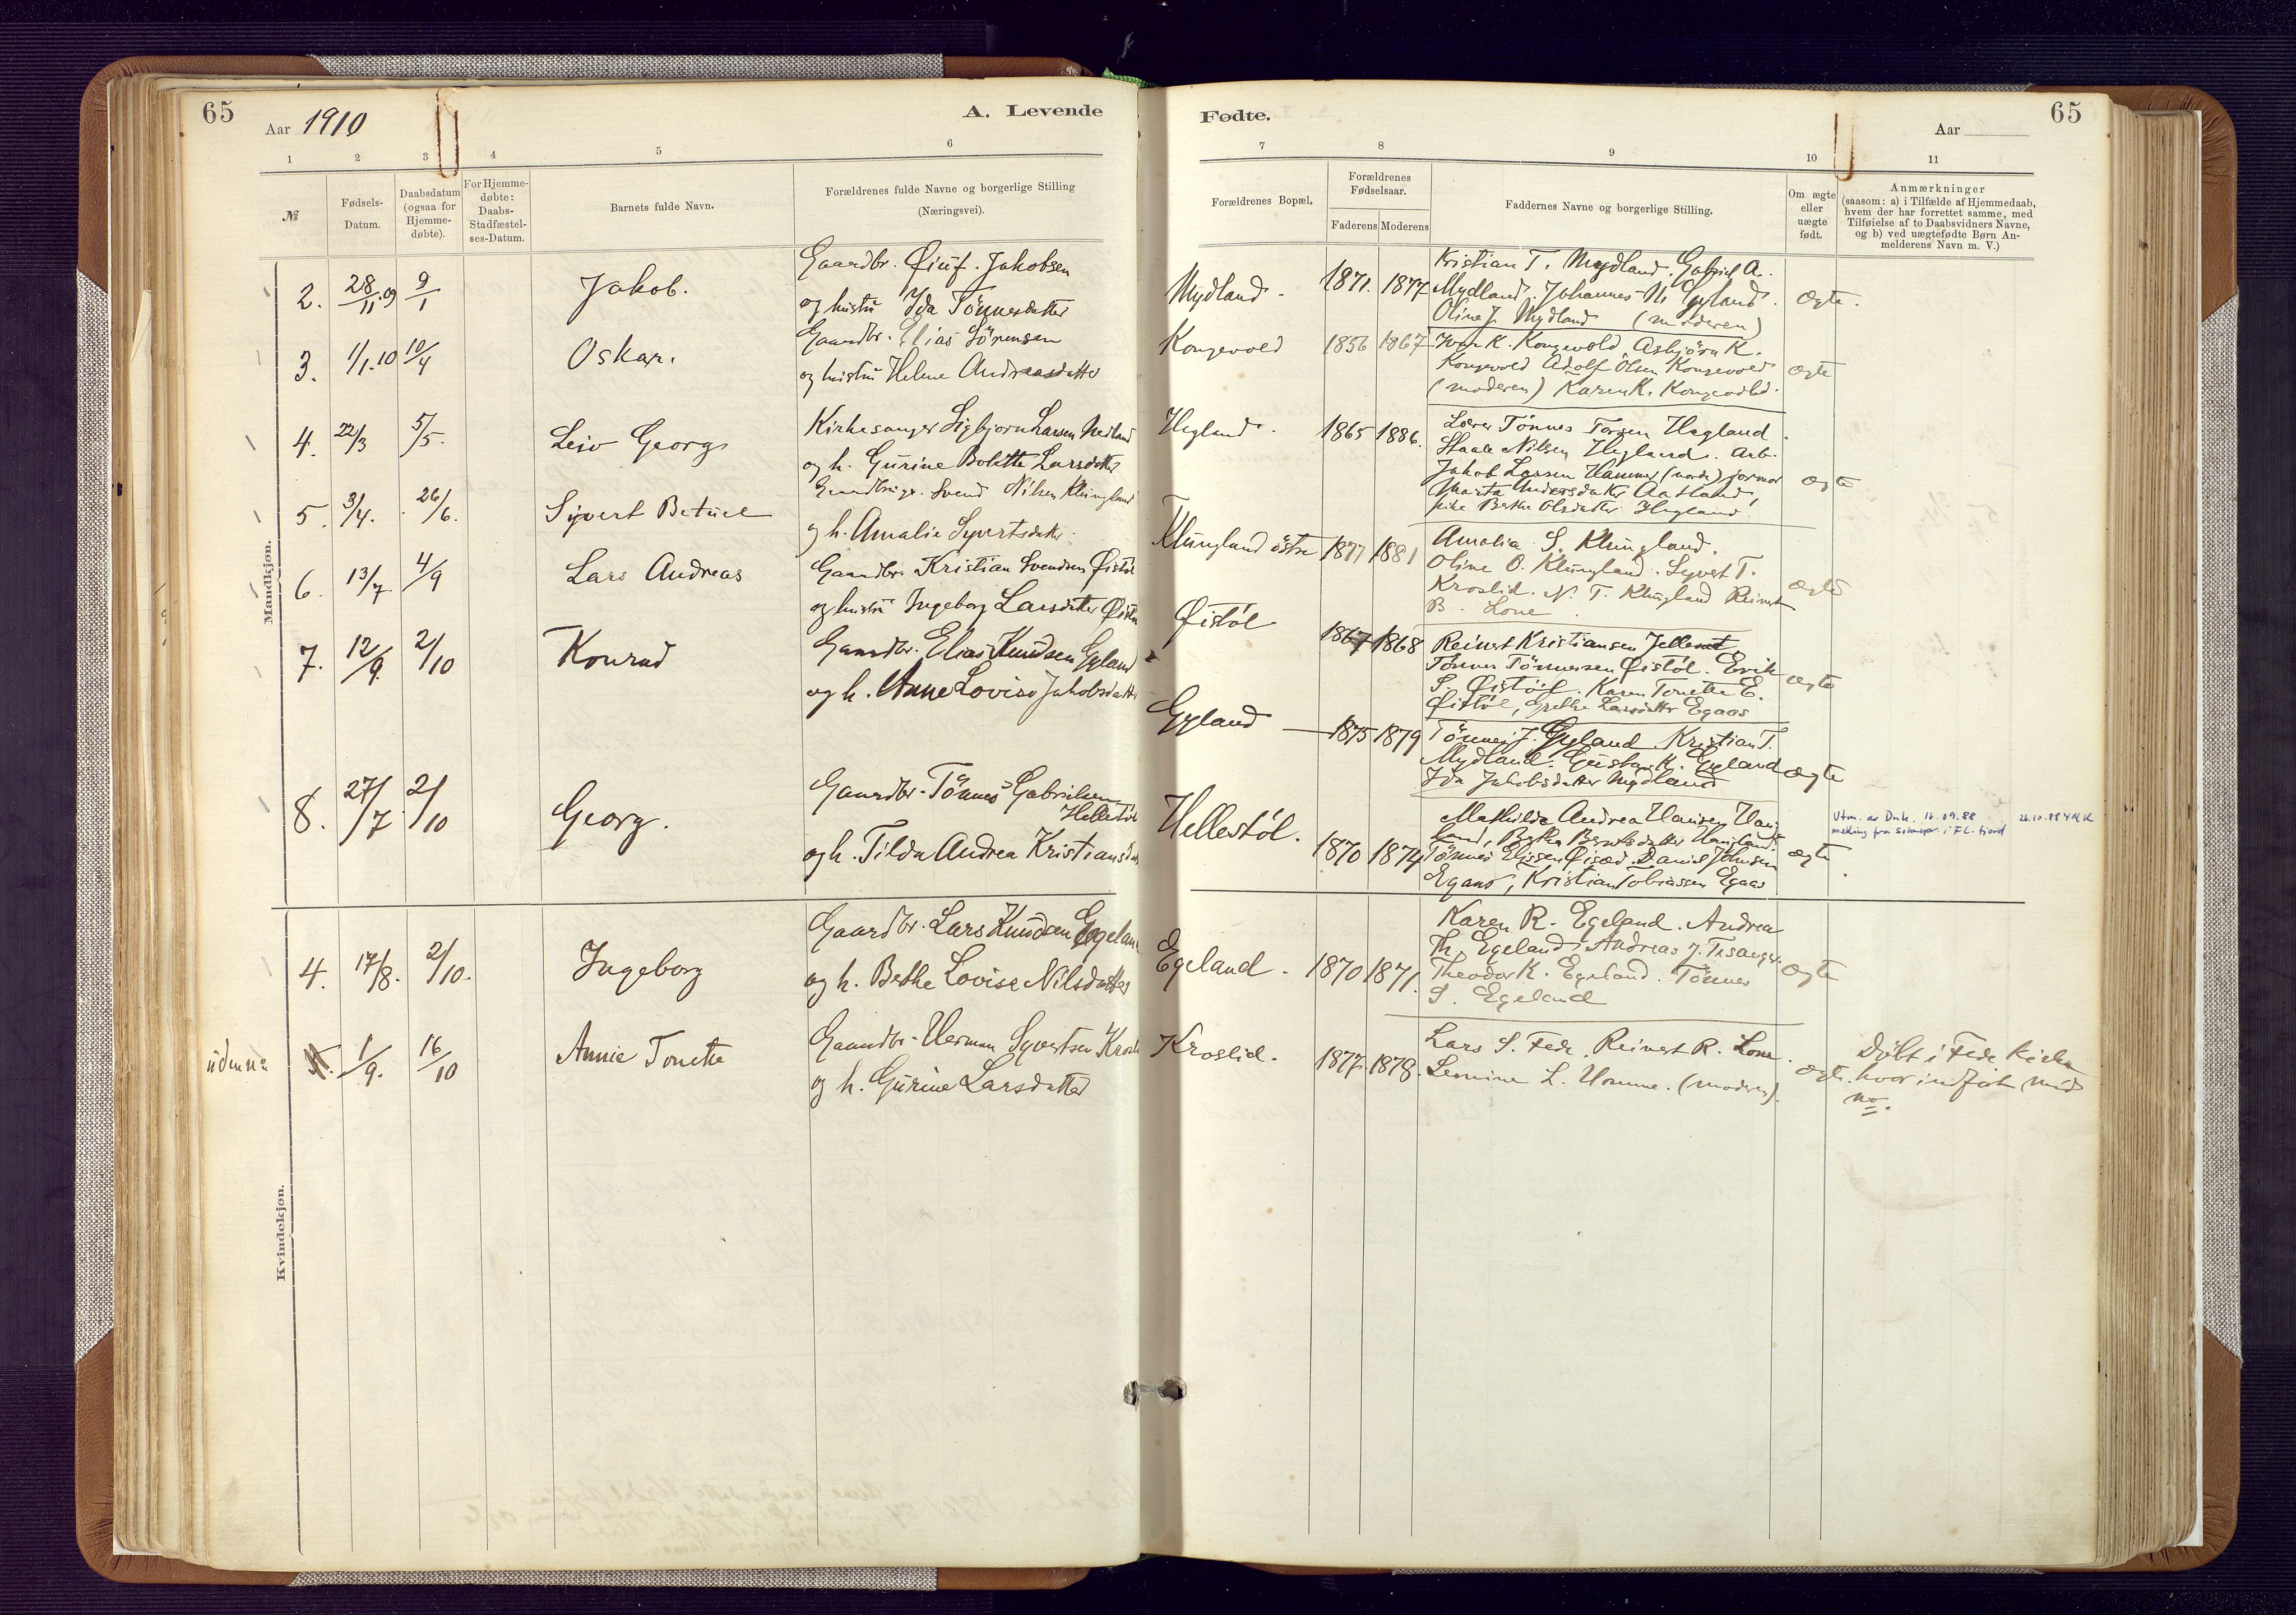 65
Aar 1910
A. Levende
1 2 3 4 5 6
№
Fødsels-
Datum.
Daabsdatum
(ogsaa for
Hjemme-
døbte).
For Hjemme-
døbte:
Daabs-
Stadfæstel-
ses-Datum.
Barnets fulde Navn.
Forældrenes fulde Navne og borgerlige Stilling
(Næringsvei).
Mandkjøn.
2. 28/11.09 9/1 Jakob.
Gaardbr. Jakobsen
og hustru Ida Tönnesdatter
3. 1/1.10 10/4 Oskar.
Gaardbr. Elias Sörensen
og hustru Helene Andreasdatter
4. 22/3 5/5. Leiv Georg
Kirkesanger Sigbjorn Larsen Nedland
og h. Gurine Bolette Larsdatter
5. 3/4. 26/6. Syvert Betuel
Gaardbruger. Svend Nilsen Klungland
og h. Amalie Syvertsdatter
6. 13/7 4/9 Lars Andreas
Gaardbr. Kristian Svendsen Øistöl
og hustru Ingeborg Larsdatter
7. 12/9. 2/10 Konrad
Gaardbr. Elias Knudsen Gyland
og h. Anne Lovise Jakobsdatter
8. 27/7 2/10 Georg.
Gaardbr. Tönnes Gabrielsen
Hellestöl
og h. Tilda Andrea Kristiansdat
Kvindekjøn.
4. 17/8. 2/10. Ingeborg
Gaardbr. Lars Knudsen Egeland
og h. Berthe Lovise Nilsdatter
uden no 1/9. 16/10 Annie Tonette
Gaardbr. Herman Syvertsen Kroslid
og h. Gurine Larsdatter
Fødte.
Aar
65
7 8 9 10 11
Forældrenes Bopæl.
Forældrenes
Fødselsaar.
Faderens Moderens
Faddernes Navne og borgerlige Stilling.
Om ægte
eller
uægte
født.
Anmærkninger
(saasom: a) i Tilfælde af Hjemmedaab,
hvem der har forrettet samme, med
Tilføielse af to Daabsvidners Navne,
og b) ved uægtefødte Børn An-
melderens Navn m. V.)
Mydland. 1871. 1877
Kristian T. Mydland. Gabriel A.
Mydland. Johannes N. Gyland.
Oline J. Mydland (moderen)
ægte.
Kongevold 1856 1867
Iver K. Kongevold Asbjörn K.
Kongevold Adolf Olsen Kongevold
(moderen) Karen K. Kongevold.
ægte
Hegland. 1865 1886.
Lærer Tönnes Hegland.
Staale Nilsen Hegland. Arb.
Jakob Larsen Hammer
Marta Andersdatter Aatland,
pike Berthe Olsdatter Hegland
ægte
Klungland östre 1877 1881
Amalia S. Klungland.
Oline O. Klungland. Syvert T.
Kroslid. N. T. Klungland Reinert
B. Lone
ægte
Øistöl 1867 1868
Reinert Kristiansen
Tönnes Tönnessen Øistöl. Erik
S. Øistöl. Karen Tonette E.
Øistöl, Grethe Larsdatter Egaas
ægte
Gyland 1875 1879
Tönnes J. Gyland Kristian T.
Mydland. Gustav K. Gyland
Ida Jakobsdatter Mydland
ægte
Hellestöl. 1870 1874
Mathilde Andrea Hansen Haug-
land, Berthe Berntsdatter Haugland.
Tönnes Eliessen Daniel Johnsen
Egaas, Kristian Tobiassen Egaas
ægte
Utm. av Dnk. 16.09.88
melding fra i Fl. fjord
26.10.88
Egeland. 1870 1871.
Karen R. Egeland. Andrea
Th. Egeland. Andreas J.
Theodor K. Egeland. Tönnes
S. Egeland
ægte
Kroslid. 1877. 1878.
Lars S. Fede. Reinert R. Lone.
L. Homme. (moderen).
ægte.
Döbt i Fede Kirke
hvor indfört med
no.